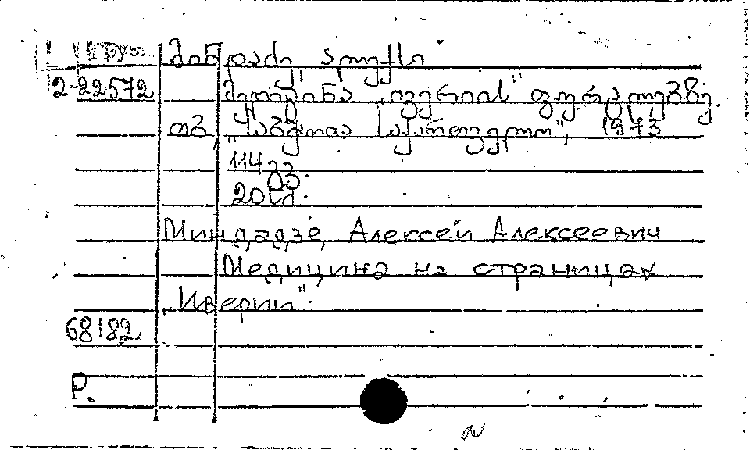 მინდაძე, ალექსი
2-22572
მედიცინა „ივერიის" ფურცლებზე.
თბ „საბჭოთა საქართველო", 1973
114 გვ.
20 სმ.
Миндадзе, Алексей Алексеевич
Медицина на страницах
„Иверии".
68182
Р.